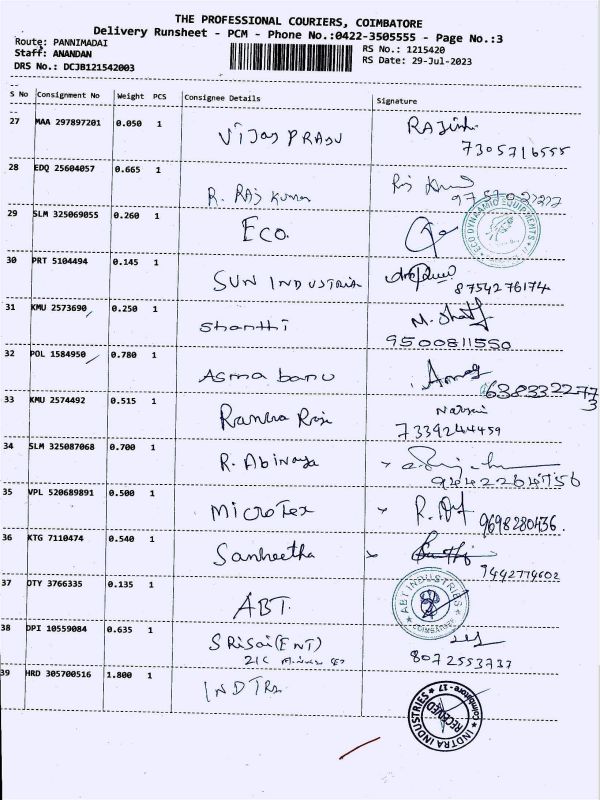 THE PROFESSIONAL COURIERS, COIMBATORE
Delivery Runsheet - PCM - Phone No.:0422-3505555 - Page No.:3
Route: PANNIMADAI
RS No.: 1215420
Staff: ANANDAN
RS Date: 29-Jul-2023
DRS No.: DCJB121542003
S No Consignment No Weight PCS Consignee Details Signature
27 MAA 297897201 0.050 1 VIJAY PRABU
7305716555
28 EDQ 25604057 0.665 1 R. RAJ KUMAR
29 SLM 325069055 0.260 1 ECO.
ECO DYNAMIC EQUIPMENTS
30 PRT 5104494 0.145 1 SUN INDUSTRIA
8754276174
31 KMU 2573690 0.250 1 Shanthi
9500811550
32 POL 1584950 0.780 1 Asma banu
638332277
3
33 KMU 2574492 0.515 1
7339244459
34 SLM 325087068 0.700 1 R. Abinaya
9442264756
35 VPL 520689891 0.500 1 Microtex
9698280436.
36 KTG 7110474 0.540 1 Sanheetha
9442774602
37 OTY 3766335 0.135 1 ABT.
ABT INDUSTRIES
COIMBATORE
38 DPI 10559084 0.635 1 SRISAI (ENT)
8072553737
39 HRD 305700516 1.800 1 INDTRA
INDTRA INDUSTRIES
RECEIVED
Coimbatore - 17